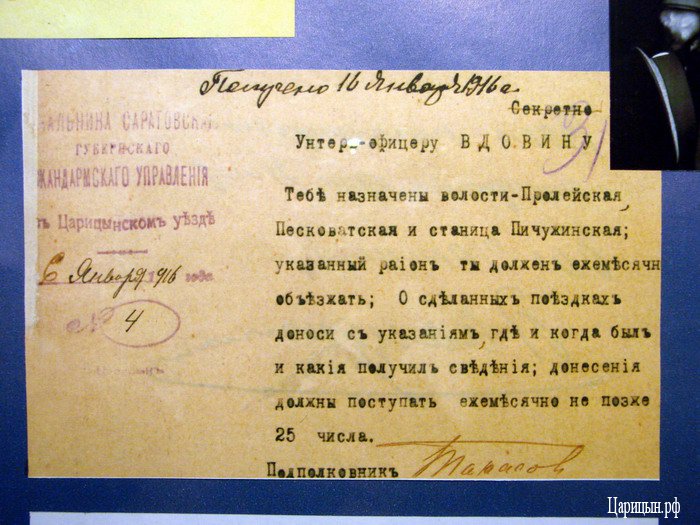 Получено 16 Января 1916 г.
Секретно
31
Унтеръ-офицеру ВДОВИНУ
НАЧАЛЬНИКА САРАТОВСКАГО
ГУБЕРНСКАГО
ЖАНДАРМСКАГО УПРАВЛЕНІЯ
въ Царицынскомъ уѣздѣ
6 Января 1916 года
№
4
Тебѣ назначены волости-Пролейская,
Песковатская и станица Пичужинская;
указанный раіонъ ты долженъ ежемѣсячн
объѣзжать; О сдѣланныхъ поѣздкахъ
доноси съ указаніямъ, гдѣ и когда былъ
и какія получилъ свѣдѣнія; донесенія
должны поступать ежемѣсячно не позже
25 числа.
Подполковникъ Тарасов
Царицын.рф